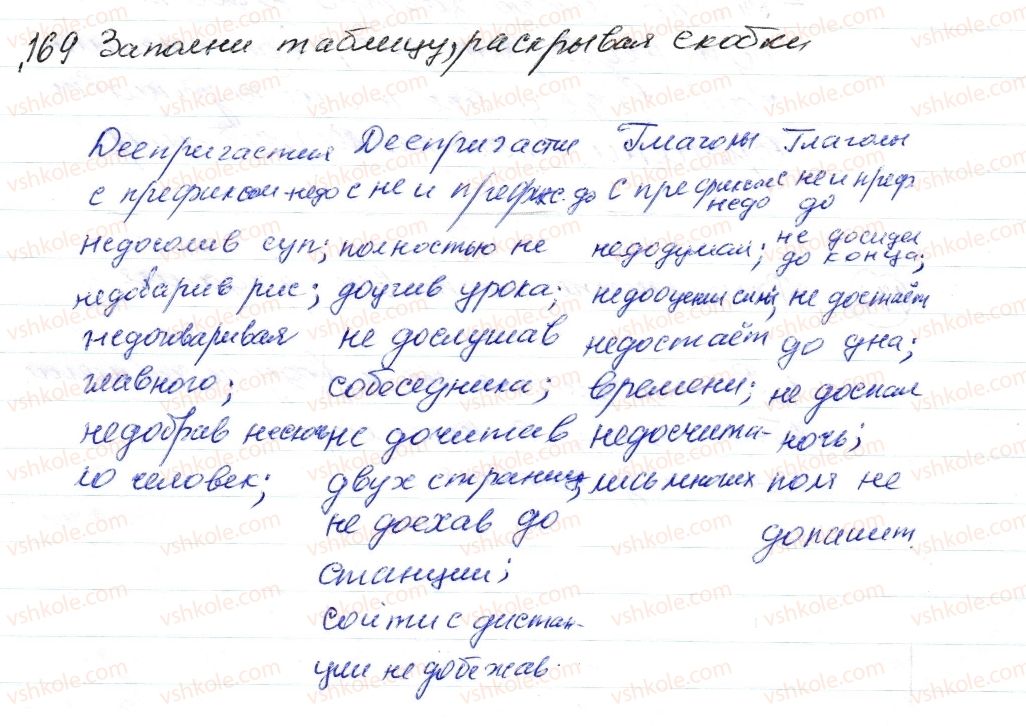 169 Заполни таблицу, раскрывая скобки
Деепричастия Деепричасти Глаголы Глаголы
с префиксом недо с не и префикс. до с префиксом недо с не и преф. до
недосолив суп; полностью не недодумал; не досидел до конца;
недоварив рис; доучив урока; недооценил силы; не достаёт
недоговаривая не дослушав недостаёт до дна;
главного; собеседника; времени; не доспал
недобрав неско не дочитав недосчита- ночь;
ло человек; двух страниц; лись многих поля не
не доехав до допашит.
станции;
сойти с дистан-
ции не добежав.
vshkole.com